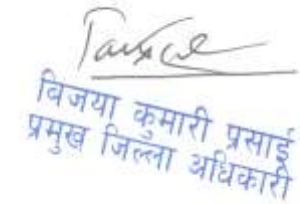 विजया कुमारी प्रसाई
प्रमुख जिल्ला अधिकारी